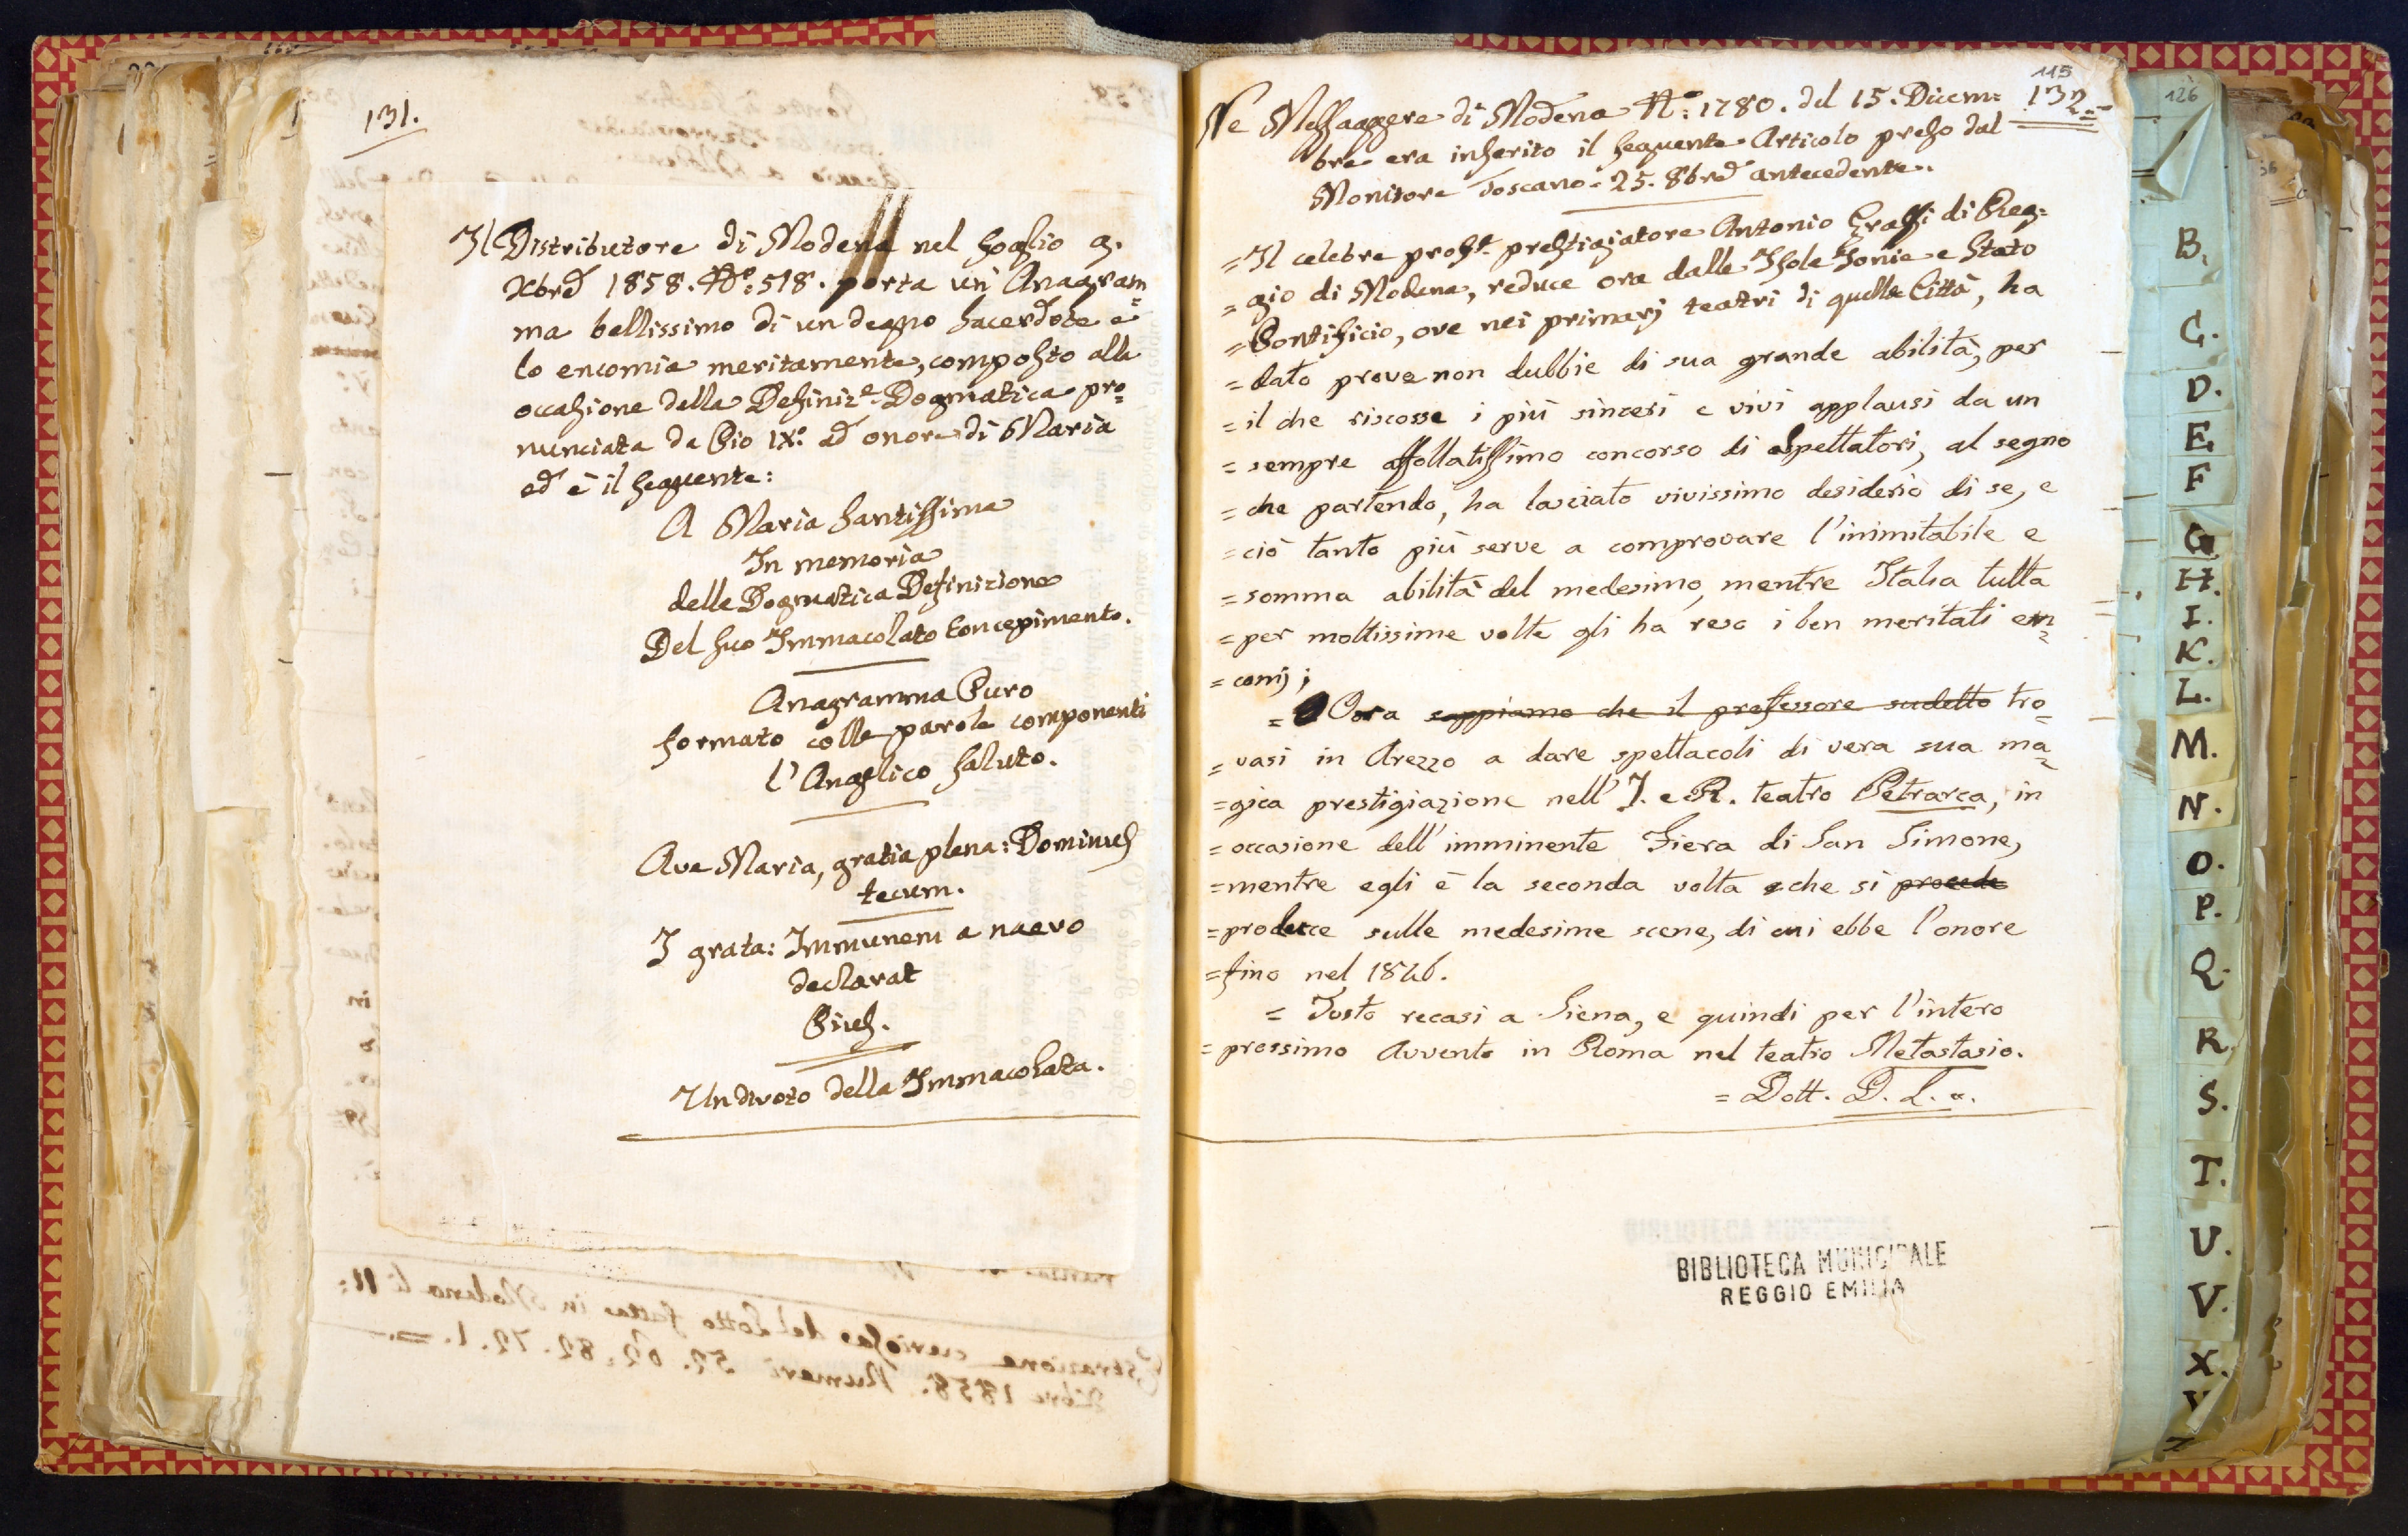 131.
Il Distributore di Modena nel foglio 9.
Xbre 1858. No: 518. porta un Anagram=
ma bellissimo di un degno sacerdote e
lo encomia meritamente, composto alla
occasione della Definiz.e Dogmatica pro=
nunciata da Pio IX.o ad onore di Maria
ed è il seguente:
A Maria Santissima
In memoria
della Dogmatica Definizione
Del suo Immacolato Concepimento.
Anagramma Puro
formato colle parole componenti
l'Angelico Saluto.
Ave Maria, gratia plena: Dominus
tecum.
I grata: Immunem a naevo
declarat
Pius.
Un divoto della Immacolata.
Estrazione curiosa del Lotto fatta in Modena li 11:
Xbre 1858. Numeri 52. 62. 82. 72. 1.
115
132.
Ne Messaggere di Modena No: 1780. del 15. Dicem=
bre era inserito il seguente Articolo preso dal
Monitore Toscano. 25. 8bre antecedente.
= Il celebre profs.e prestigiatore Antonio Grassi di Reg=
= gio di Modena, reduce ora dalle Isole Jonie e Stato
= Pontificio, ove nei primarj teatri di quelle Città, ha
= dato prove non dubbie di sua grande abilità, per
= il che riscosse i più sinceri e vivi applausi da un
= sempre affollatissimo concorso di Spettatori, al segno
= che partendo, ha lasciato vivissimo desiderio di se, e
= ciò tanto più serve a comprovare l'inimitabile e
= somma abilità del medesimo, mentre Italia tutta
= per moltissime volte gli ha reso i ben meritati en=
= comj;
= Oora sappiamo che il professore sudetto tro=
= vasi in Arezzo a dare spettacoli di vera sua ma=
= gica prestigiazione nell' I. e R. teatro Petrarca, in
= occasione dell' imminente Fiera di San Simone,
= mentre egli è la seconda volta che si procede
= produce sulle medesime scene, di cui ebbe l'onore
= fino nel 1846.
= Tosto recasi a Siena, e quindi per l'intero
= prossimo Avvento in Roma nel teatro Metastasio.
= Dott. D. L. =.
BIBLIOTECA MUNICIPALE
REGGIO EMILIA
126
B.
C.
D.
E
F
G
H.
I.
K.
L.
M.
N.
O.
P.
Q.
R.
S.
T.
U.
V.
X.
Y
Z